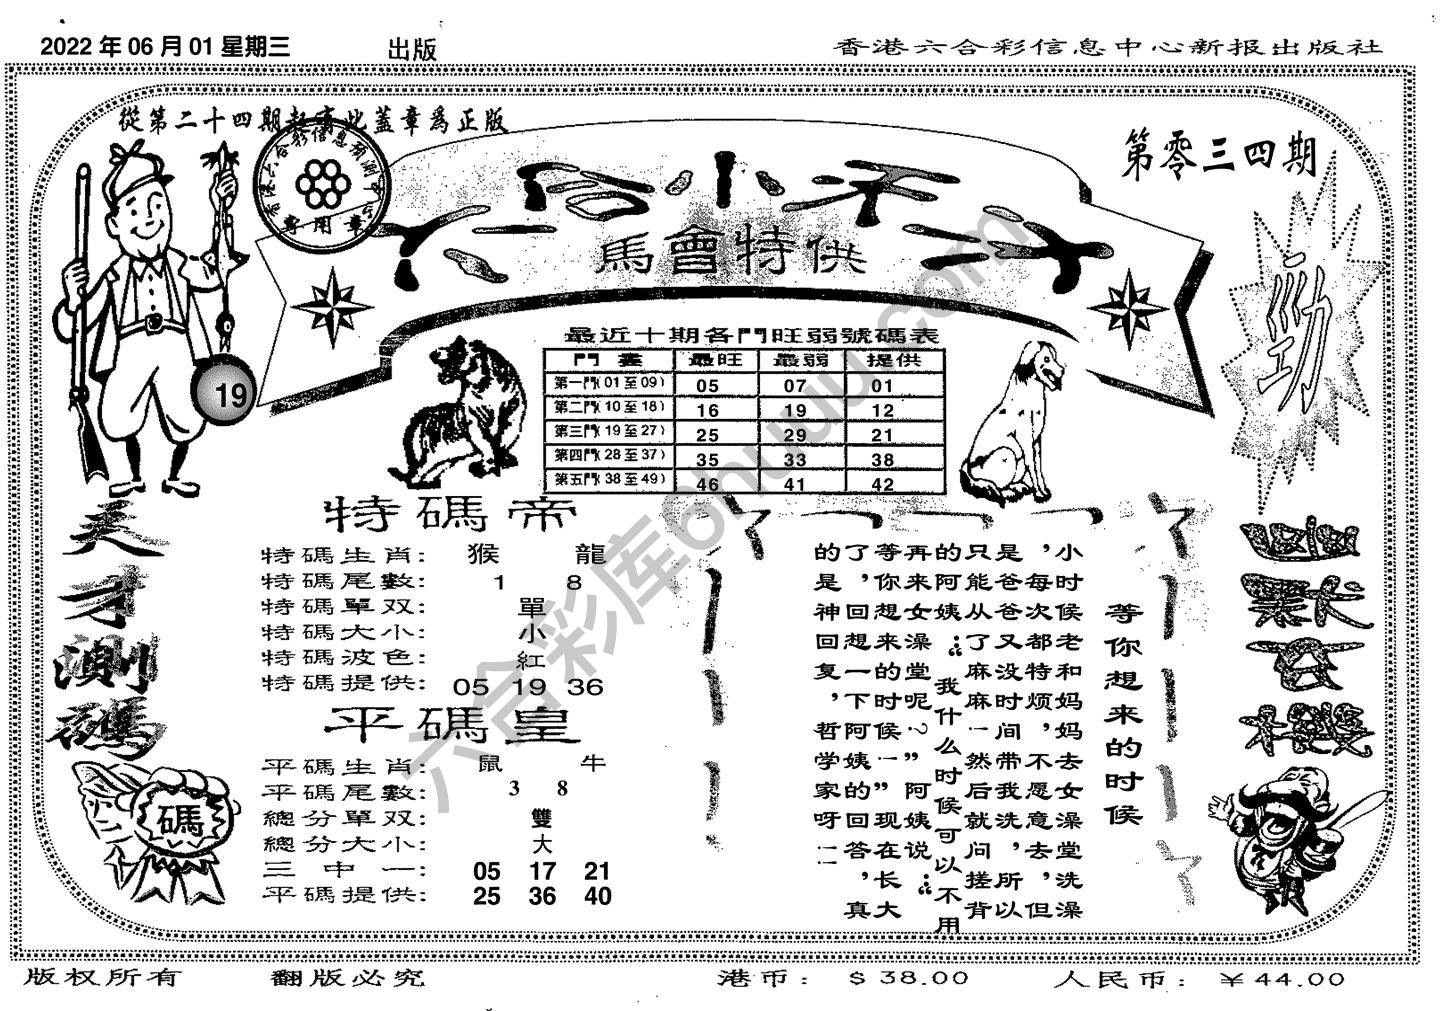 2022 年 06 月 01 星期三
出版
香港六合彩信息中心新报出版社
從第二十四期起有此蓋章爲正版
第零三四期
專用章
馬會特供
勁
19
最近十期各門旺弱號碼表
門 最旺 最弱 提供
第一門(01至09) 05 07 01
第二門(10至18) 16 19 12
第三門(19至27) 25 29 21
第四門(28至37) 35 33 38
第五門(38至49) 46 41 42
天才測碼
特碼帝
特碼生肖: 猴 龍
特碼尾數: 1 8
特碼單双: 單
特碼大小: 小
特碼波色: 紅
特碼提供: 05 19 36
平碼皇
平碼生肖: 鼠 牛
平碼尾數: 3 8
總分單双: 雙
總分大小: 大
三中一: 05 17 21
平碼提供: 25 36 40
碼
等你想来的时候
小时候老和妈妈去女澡堂洗澡
，每次都特烦，不愿意去，但
是爸爸又没时间带我洗，所以
只能从了麻麻一然后就问搓背
的阿姨：“我什么时候可以不用
再来女澡堂呢？”阿姨说：“
等你想来的时候一”现在长大
了，回想一下阿姨的回答，真
的是神回复，哲学家呀——
六合彩库6huuu.com
版权所有
翻版必究
港币： $ 38.00
人民币：￥44.00